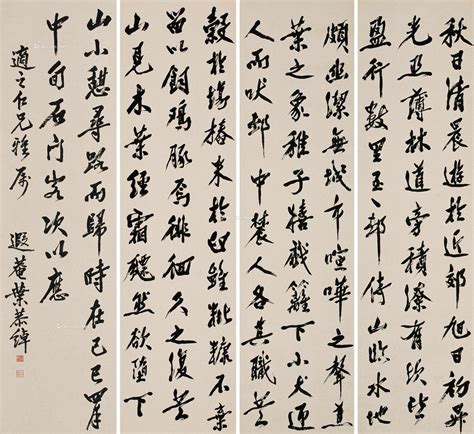 秋日清晨遊於近郊旭日初昇
光照薄林道旁積潦有坎皆
盈行數里至一邨倚山臨水地
頗幽潔無城市喧嘩之聲
葉之象稚子嬉戲籬下小犬迎
人而吠邨中農人各其職登
穀於場椿米於臼雖秕糠不棄
留以飼鷄豚焉徘徊久之復登
山見木葉經霜飃然欲墮下
山小憩尋路而歸時在己巳
中旬石門客次以應
適之仁兄雅屬
遐菴葉恭綽